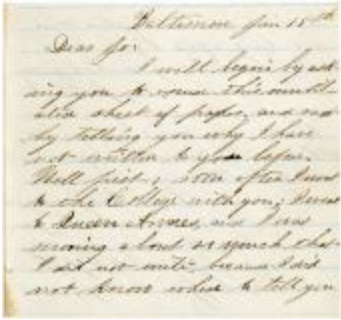 Baltimore Jan 15th
Dear Jo:
I will begin by ask
ing you to excuse this
sheet of paper, and next
by telling you why I have
not written to you before.
Well first, soon after I went
to the College with you, I went
to Queen Annes, and I was
moving about so much that
I did not write because I did
not know where to tell you